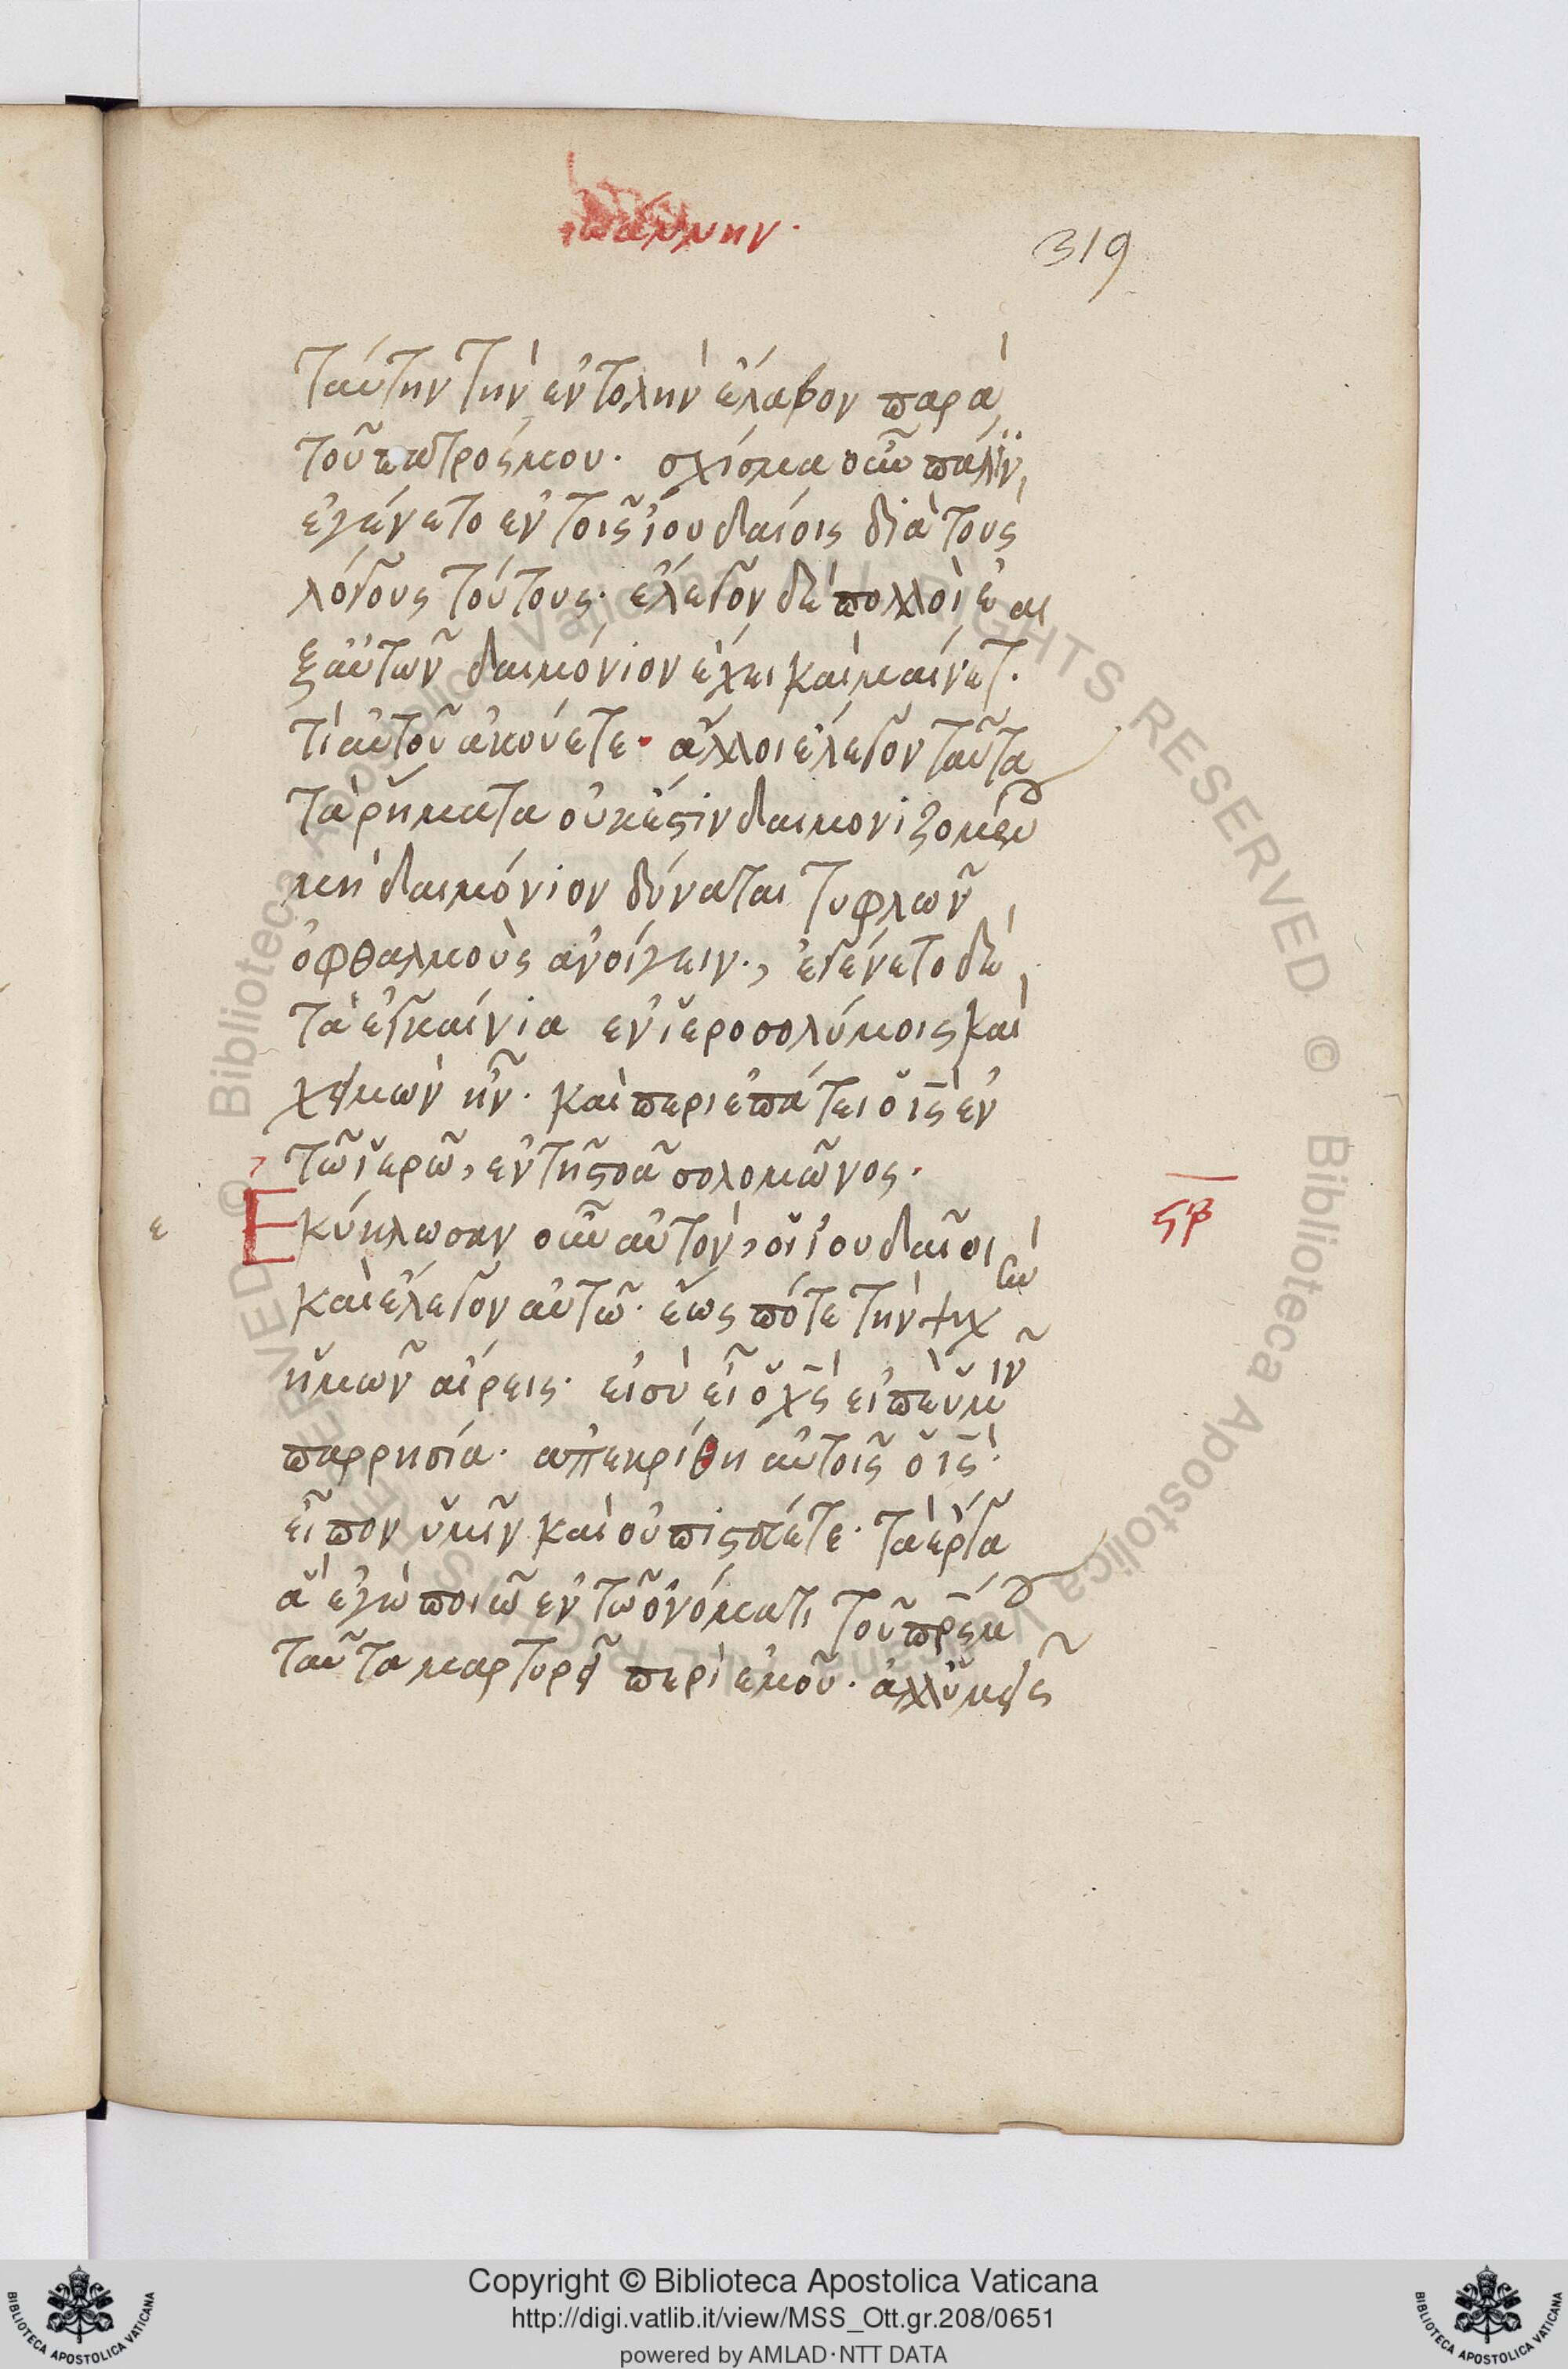 ἰωάννην·
319
ταύτην τὴν ἐντολὴν ἔλαβον παρὰ
τοῦ πατρός μου· σχίσμα οὖν πάλϊν
ἐγένετο ἐν τοῖς ἰουδαίοις διὰ τοὺς
λόγους τούτους· ἔλεγον δὲ πολλοὶ ἐ
ξ αὐτῶν δαιμόνιον ἔχει καὶ μαίνεται·
τί αὐτοῦ ἀκούετε· ἄλλοι ἔλεγον ταῦτα
τὰ ῥήματα οὐκ ἔστιν δαιμονιζομένου
μὴ δαιμόνιον δύναται τυφλῶν
ὀφθαλμοὺς ἀνοίγειν·, ἐγένετο δὲ
τὰ ἐγκαίνια ἐν ἱεροσολύμοις καὶ
χειμὼν ἦν· καὶ περιεπάτει ὁ ις ἐν
τῶ ἱερῶ, ἐν τῇ στοᾶ σολομῶνος·
ε Ἐκύκλωσαν οὖν αὐτὸν, οἱ ἰουδαῖοι ϛβ
καὶ ἔλεγον αὐτῶ· ἕως πότε τὴν ψυχὴν
ἡμῶν αἴρεις· εἰ σὺ εἶ ὁ χς εἰπὲ ὑμῖν
παρρησία· ἀπεκρίθη αὐτοῖς ὁ ις·
εἶπον ὑμῖν καὶ οὐ πιστεύετε· τὰ ἔργα
ἃ ἐγὼ ποιῶ ἐν τῶ ὀνόματι τοῦ πρς μου
ταῦτα μαρτυρεῖ περὶ ἐμοῦ· ἀλλ' ὑμεῖς
Copyright © Biblioteca Apostolica Vaticana
http://digi.vatlib.it/view/MSS_Ott.gr.208/0651
powered by AMLAD·NTT DATA